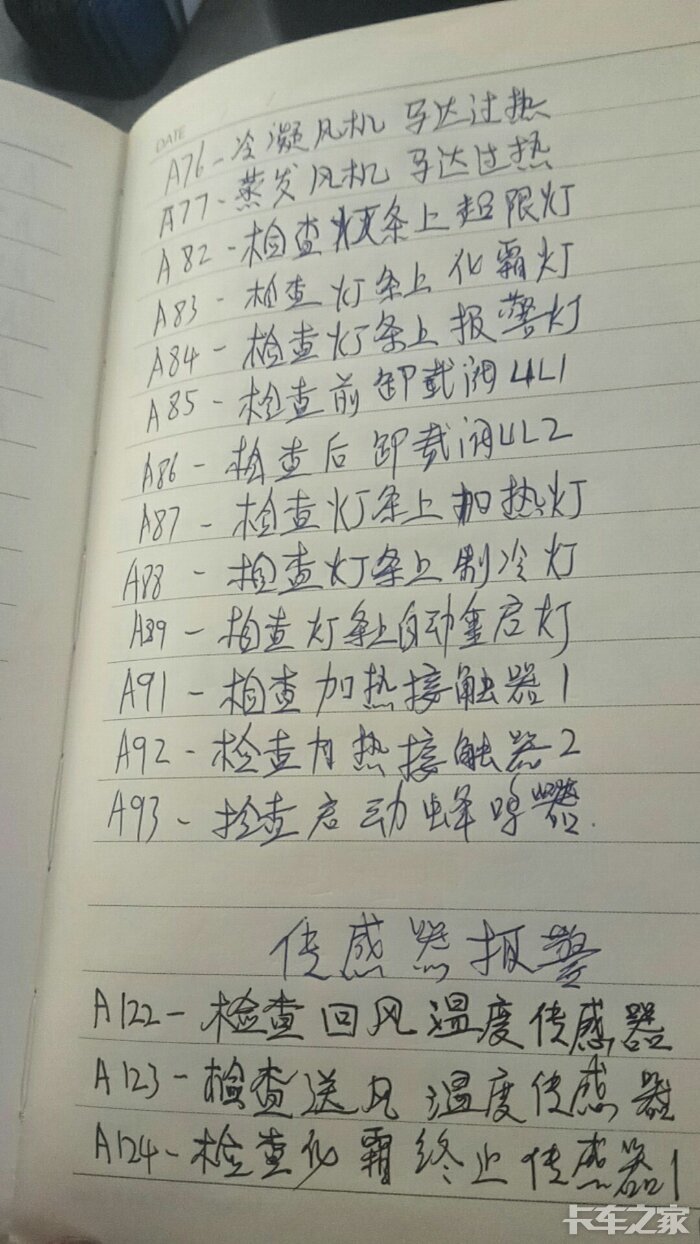 DATE
A76-冷凝风机 马达过热
A77-蒸发风机 马达过热
A82-检查灯条上超限灯
A83-检查灯条上化霜灯
A84-检查灯条上报警灯
A85-检查前卸载阀UL1
A86-检查后卸载阀UL2
A87-检查灯条上加热灯
A88-检查灯条上制冷灯
A89-检查灯条上自动重启灯
A91-检查加热接触器1
A92-检查加热接触器2
A93-检查启动蜂鸣器.
传感器报警
A122-检查回风温度传感器
A123-检查送风温度传感器
A124-检查化霜终止传感器1
卡车之家